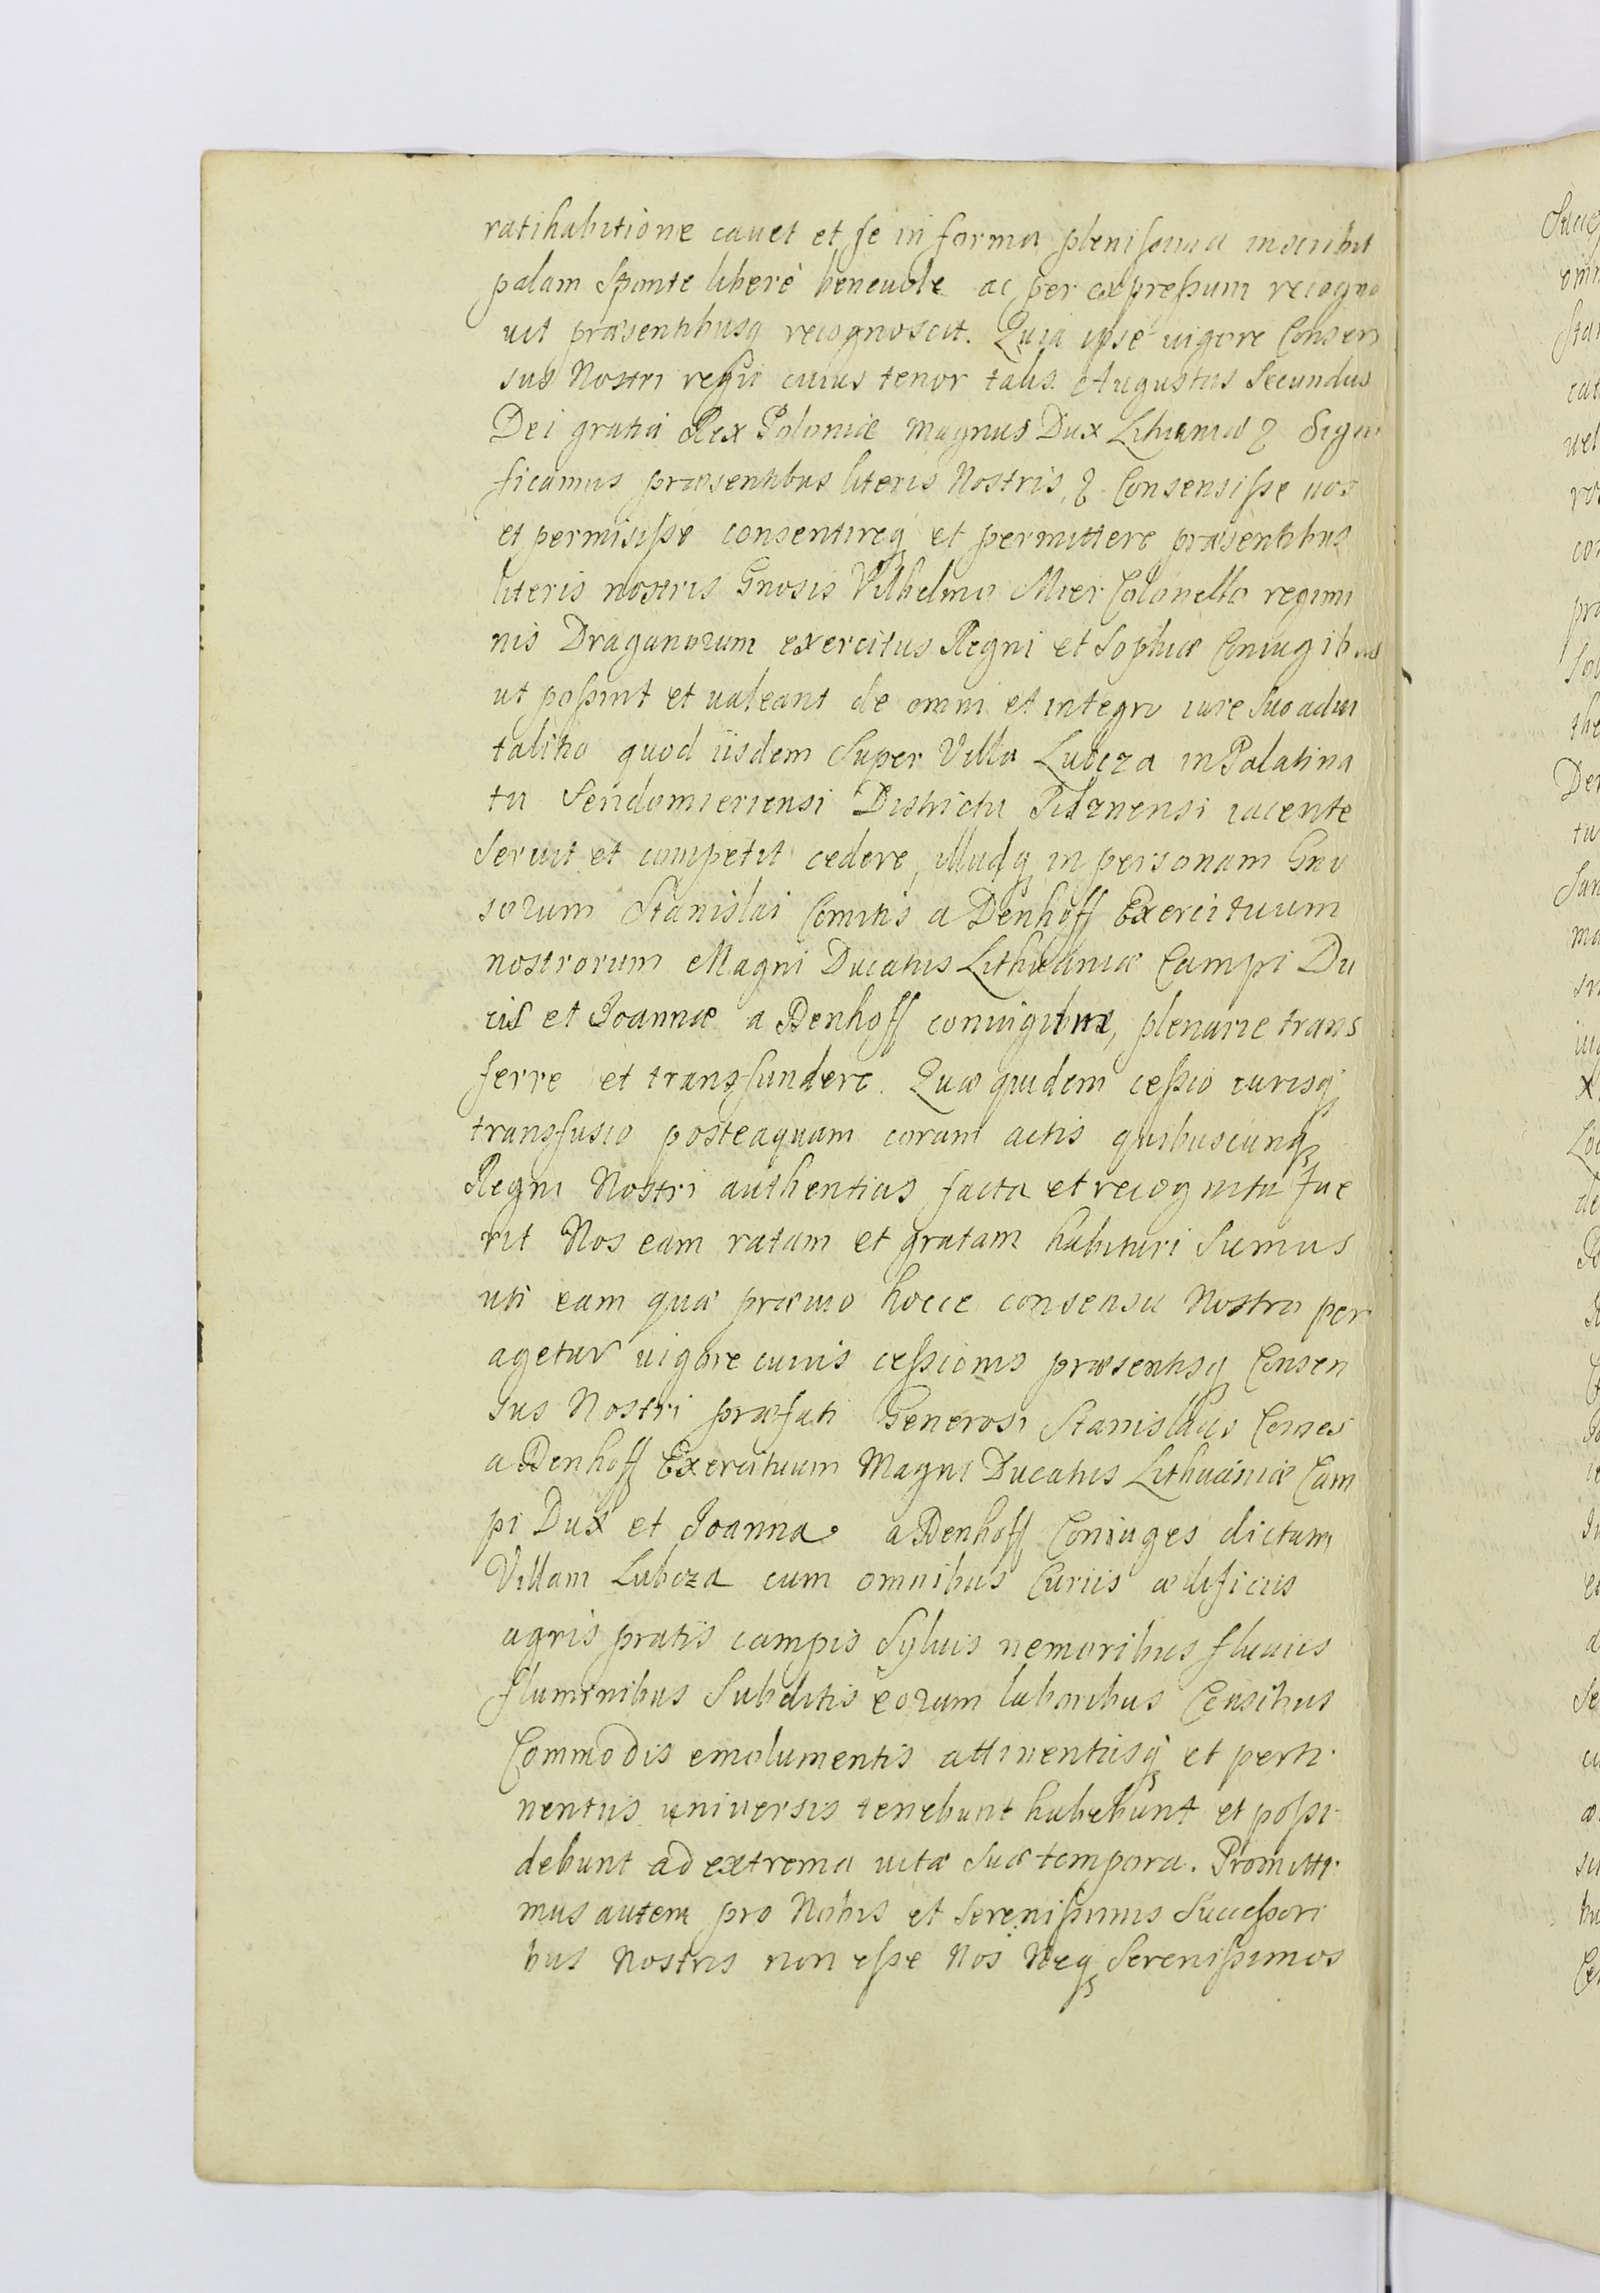 ratihabitione cavet et se in forma plenissima inscribit
palam sponte liberè benevole ac per expressum recogno
vit præsentibusq recognoscit. Quia ipse vigore Consen
sus Nostri regii cuius tenor talis. Augustus Secundus
Dei gratia Rex Poloniæ Magnus Dux Lithuaniæ & Signi
ficamus præsentibus literis Nostris, & Consensisse nos
et permisisse consentireq et permittere præsentibus
literis nostris Gnosis Vilhelmo Mier Colonello regimi
nis Draganorum exercitus Regni et Sophiæ Coniugibus
ut possint et valeant de omni et integro iure suo advi
talitio quod iisdem super Villa Lubcza in Palatina
tu Sendomieriensi Districtu Pilznensi iacente
servit et competit cedere, illudq in personam Gno
sorum Stanislai Comitis a Denhoff Exercituum
nostrorum Magni Ducatus Lithuaniæ Campi Du
cis et Joannæ a Denhoff coniugibus, plenarie trans
ferre et transfundere. Quæ quidem cessio iurisq
transfusio posteaquam coram actis quibuscunq
Regni Nostri authenticis facta et recognita fue
rit Nos eam ratam et gratam habituri sumus
uti eam quæ prævio hocce consensu Nostro per
agetur vigore cuius cessionis præsentisq Consen
sus Nostri præfati Generosi Stanislaus Comes
a Denhoff Exercituum Magni Ducatus Lithuaniæ Cam
pi Dux et Joanna a Denhoff Coniuges dictam
Villam Lubcza cum omnibus Curiis ædificiis
agris pratis campis sylvis nemoribus fluviis
fluminibus subditis eorum laboribus Censibus
Commodis emolumentis attinentiisq et perti
nentiis universis tenebunt habebunt et possi
debunt ad extrema vitæ suæ tempora. Promitti
mus autem pro Nobis et Serenissimis Successori
bus Nostris non esse Nos Neq Serenissimos